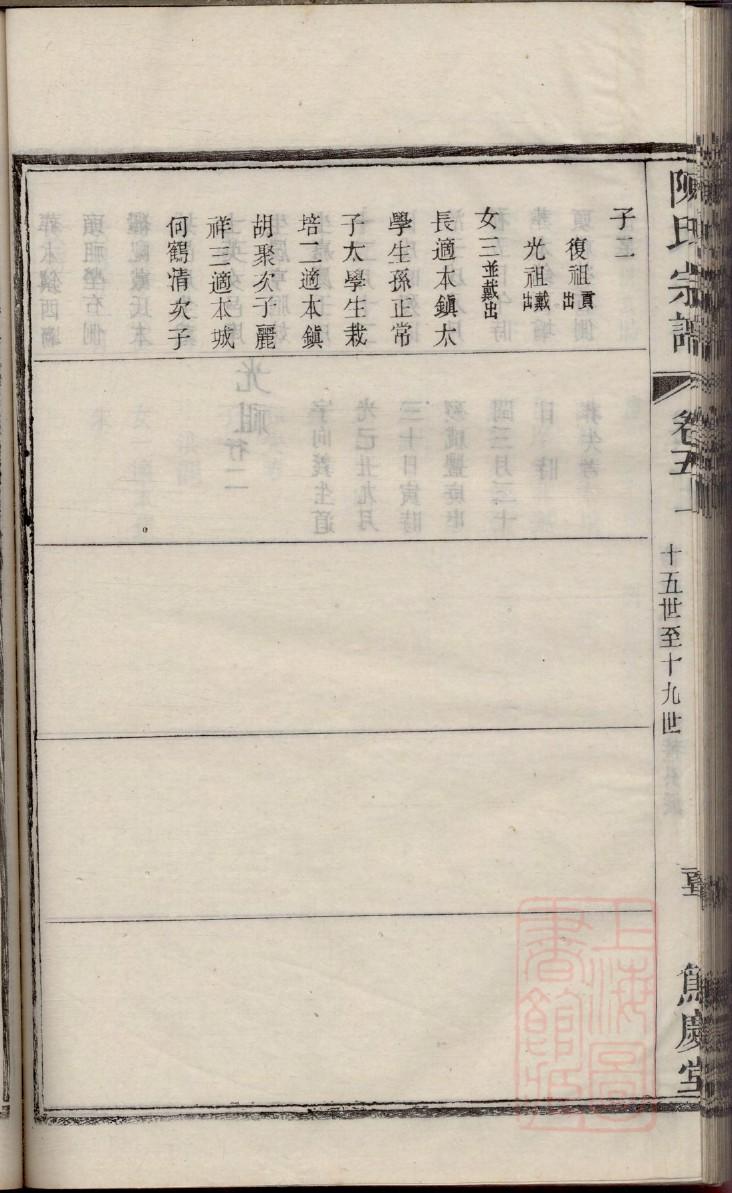 陳氏宗譜 卷五 十五世至十九世 篤慶堂
子二
復祖貢出
光祖戴出
女三並戴出
長適本鎭太
學生孫正常
子太學生栽
培二適本鎭
胡聚次子麗
祥三適本城
何鶴清次子
上海圖書館藏